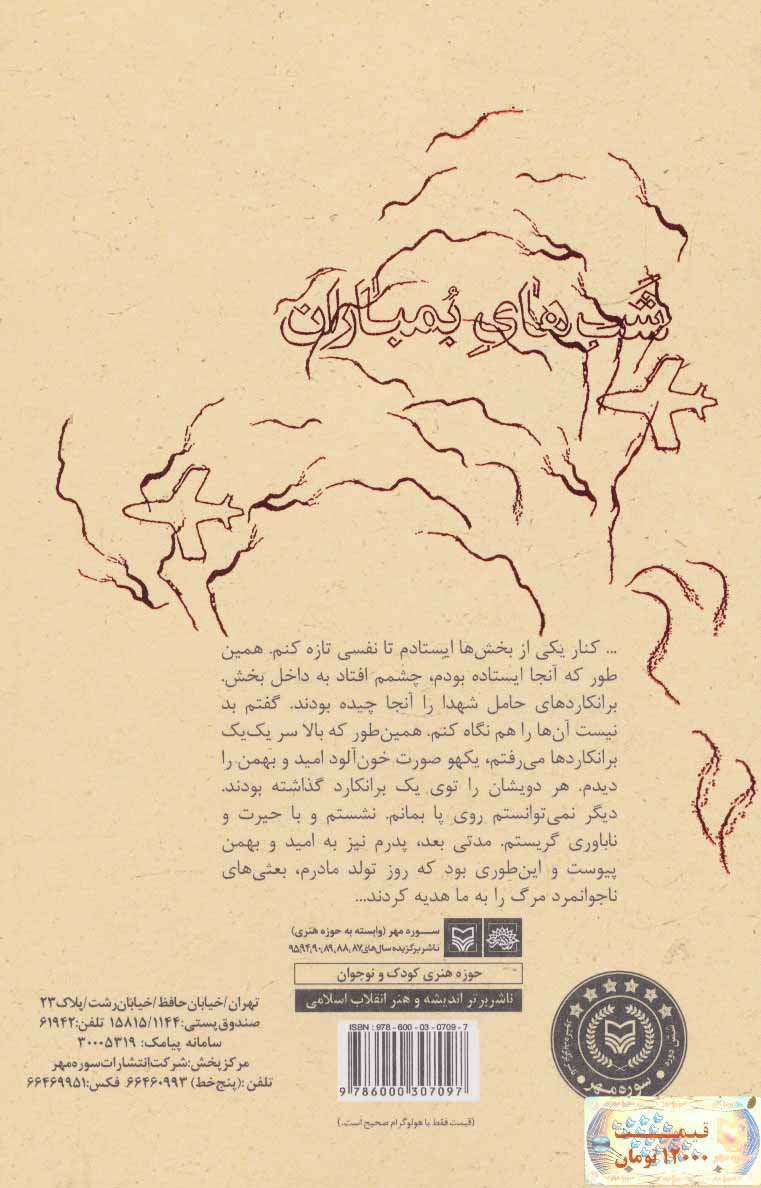 شَب‌هایِ بُمباران
... کنار یکی از بخش‌ها ایستادم تا نفسی تازه کنم. همین
طور که آنجا ایستاده بودم، چشمم افتاد به داخل بخش.
برانکاردهای حامل شهدا را آنجا چیده بودند. گفتم بد
نیست آن‌ها را هم نگاه کنم. همین‌طور که بالا سر یک‌یک
برانکاردها می‌رفتم، یکهو صورت خون‌آلود امید و بهمن را
دیدم. هر دویشان را توی یک برانکارد گذاشته بودند.
دیگر نمی‌توانستم روی پا بمانم. نشستم و با حیرت و
ناباوری گریستم. مدتی بعد، پدرم نیز به امید و بهمن
پیوست و این‌طوری بود که روز تولد مادرم، بعثی‌های
ناجوانمرد مرگ را به ما هدیه کردند...
ســوره مهر (وابسته به حوزه هنری)
ناشر برگزیده سال‌های ۸۷، ۸۸، ۸۹، ۹۰، ۹۴، ۹۵
حوزه هنری کودک و نوجوان
ناشر برتر اندیشه و هنر انقلاب اسلامی
تهران/خیابان حافظ/خیابان رشت/پلاک ۲۳
صندوق پستی: ۱۵۸۱۵/۱۱۴۴ تلفن: ۶۱۹۴۲
سامانه پیامک: ۳۰۰۰۵۳۱۹
مرکز پخش: شرکت انتشارات سوره مهر
تلفن: (پنج خط) ۶۶۴۶۰۹۹۳ فکس: ۶۶۴۶۹۹۵۱
ISBN: 978-600-03-0709-7
9 786000 307097
(قیمت فقط با هولوگرام صحیح است.)
سوره مهر
قیمــت
۱۲۰۰۰ تومان